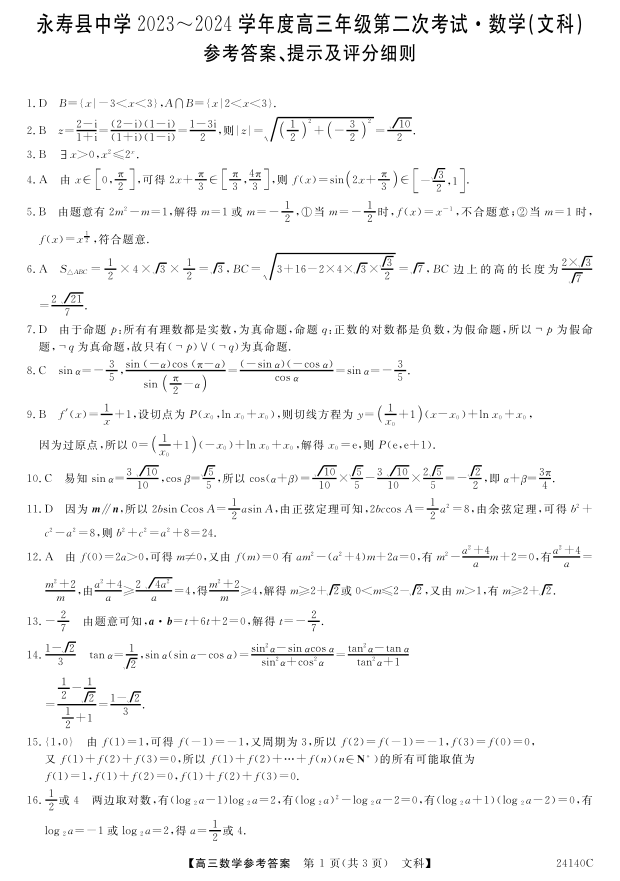 永寿县中学 2023～2024 学年度高三年级第二次考试·数学(文科)
参考答案、提示及评分细则
1. D B={x|−3<x<3},A∩B={x|2<x<3}.
2. B z=\frac{2−i}{1+i}=\frac{(2−i)(1−i)}{(1+i)(1−i)}=\frac{1−3i}{2},则|z|=\sqrt{(\frac{1}{2})^2+(−\frac{3}{2})^2}=\frac{\sqrt{10}}{2}.
3. B ∃x>0,x²≤2ˣ.
4. A 由 x∈[0,\frac{π}{2}],可得 2x+\frac{π}{3}∈[\frac{π}{3},\frac{4π}{3}],则 f(x)=sin(2x+\frac{π}{3})∈[−\frac{\sqrt{3}}{2},1].
5. B 由题意有 2m²−m=1,解得 m=1 或 m=−\frac{1}{2},①当 m=−\frac{1}{2}时,f(x)=x⁻¹,不合题意;②当 m=1 时,
f(x)=x^{\frac{1}{2}},符合题意.
6. A S_{△ABC}=\frac{1}{2}×4×\sqrt{3}×\frac{1}{2}=\sqrt{3},BC=\sqrt{3+16−2×4×\sqrt{3}×\frac{\sqrt{3}}{2}}=\sqrt{7},BC 边上的高的长度为\frac{2×\sqrt{3}}{\sqrt{7}}
=\frac{2\sqrt{21}}{7}.
7. D 由于命题 p:所有有理数都是实数,为真命题,命题 q:正数的对数都是负数,为假命题,所以¬p 为假命
题,¬q 为真命题,故只有(¬p)∨(¬q)为真命题.
8. C sin α=−\frac{3}{5},\frac{sin(−α)cos(π−α)}{sin(\frac{π}{2}−α)}=\frac{(−sin α)(−cos α)}{cos α}=sin α=−\frac{3}{5}.
9. B f′(x)=\frac{1}{x}+1,设切点为 P(x₀,ln x₀+x₀),则切线方程为 y=(\frac{1}{x₀}+1)(x−x₀)+ln x₀+x₀,
因为过原点,所以 0=(\frac{1}{x₀}+1)(−x₀)+ln x₀+x₀,解得 x₀=e,则 P(e,e+1).
10. C 易知 sin α=\frac{3\sqrt{10}}{10},cos β=\frac{\sqrt{5}}{5},所以 cos(α+β)=\frac{\sqrt{10}}{10}×\frac{\sqrt{5}}{5}−\frac{3\sqrt{10}}{10}×\frac{2\sqrt{5}}{5}=−\frac{\sqrt{2}}{2},即 α+β=\frac{3π}{4}.
11. D 因为 m∥n,所以 2bsin Ccos A=\frac{1}{2}asin A,由正弦定理可知,2bccos A=\frac{1}{2}a²=8,由余弦定理,可得 b²+
c²−a²=8,则 b²+c²=a²+8=24.
12. A 由 f(0)=2a>0,可得 m≠0,又由 f(m)=0 有 am²−(a²+4)m+2a=0,有 m²−\frac{a²+4}{a}m+2=0,有\frac{a²+4}{a}=
\frac{m²+2}{m},由\frac{a²+4}{a}≥\frac{2\sqrt{4a²}}{a}=4,得\frac{m²+2}{m}≥4,解得 m≥2+\sqrt{2}或 0<m≤2−\sqrt{2},又由 m>1,有 m≥2+\sqrt{2}.
13. −\frac{2}{7} 由题意可知,a·b=t+6t+2=0,解得 t=−\frac{2}{7}.
14. \frac{1−\sqrt{2}}{3} tan α=\frac{1}{\sqrt{2}},sin α(sin α−cos α)=\frac{sin²α−sin αcos α}{sin²α+cos²α}=\frac{tan²α−tan α}{tan²α+1}
=\frac{\frac{1}{2}−\frac{1}{\sqrt{2}}}{\frac{1}{2}+1}=\frac{1−\sqrt{2}}{3}.
15. {1,0} 由 f(1)=1,可得 f(−1)=−1,又周期为 3,所以 f(2)=f(−1)=−1,f(3)=f(0)=0,
又 f(1)+f(2)+f(3)=0,所以 f(1)+f(2)+⋯+f(n)(n∈N*)的所有可能取值为
f(1)=1,f(1)+f(2)=0,f(1)+f(2)+f(3)=0.
16. \frac{1}{2}或 4 两边取对数,有(log₂a−1)log₂a=2,有(log₂a)²−log₂a−2=0,有(log₂a+1)(log₂a−2)=0,有
log₂a=−1 或 log₂a=2,得 a=\frac{1}{2}或 4.
【高三数学参考答案 第 1 页(共 3 页) 文科】 24140C